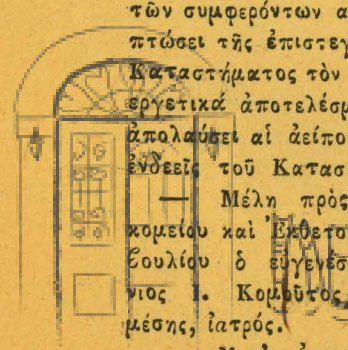 τῶν συμφερόντων α
πτώσει τῆς ἐπιστεγ
Καταστήματος τὸν
εργετικά ἀποτελέσμ
ἀπολαύσει αἱ ἀείπο
ἐνδεεῖς τοῦ Κατασ
— Μέλη πρὸς
κομείου καὶ Ἐκθετο
βουλίου ὁ εὐγενέσ
νιος Ι. Κομοῦτος,
μέσης, ἰατρός.